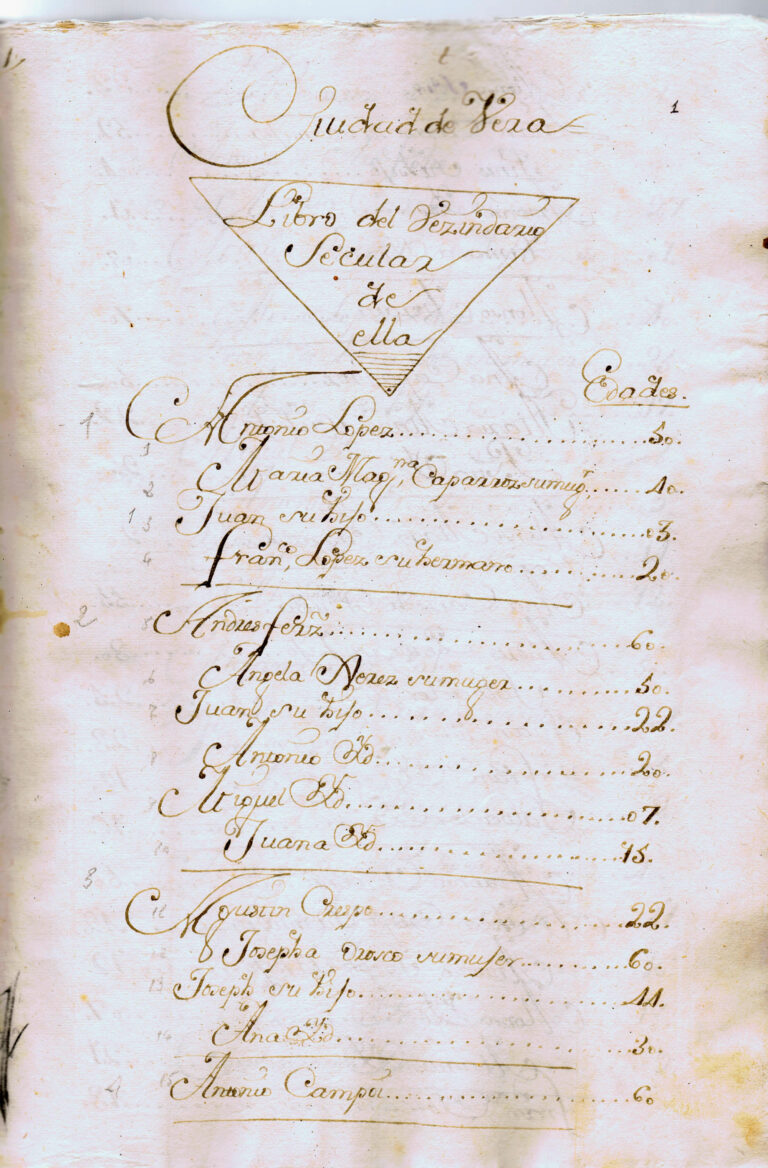 1
Ciudad de Vera
Libro del Vezindario
Secular
de
ella
Edades.
1 Antonio Lopez 50.
1
2 Maria Magna, Caparroz su mugr 40.
1 3 Juan su hijo 03.
4 Franco, Lopez su hermano 20.
2 5 Andres ferrz 60.
6 Angela Perez su muger 50.
7 Juan su hijo 22.
8 Antonio Yd. 20.
Miguel Yd. 07.
10 Juana Yd. 15.
3
11 Agustin Crespo 22.
12 Josepha Orosco su mujer 60.
13 Joseph su hijo 44.
14 Ana Yd. 30.
4 15 Antonio Campoi 60